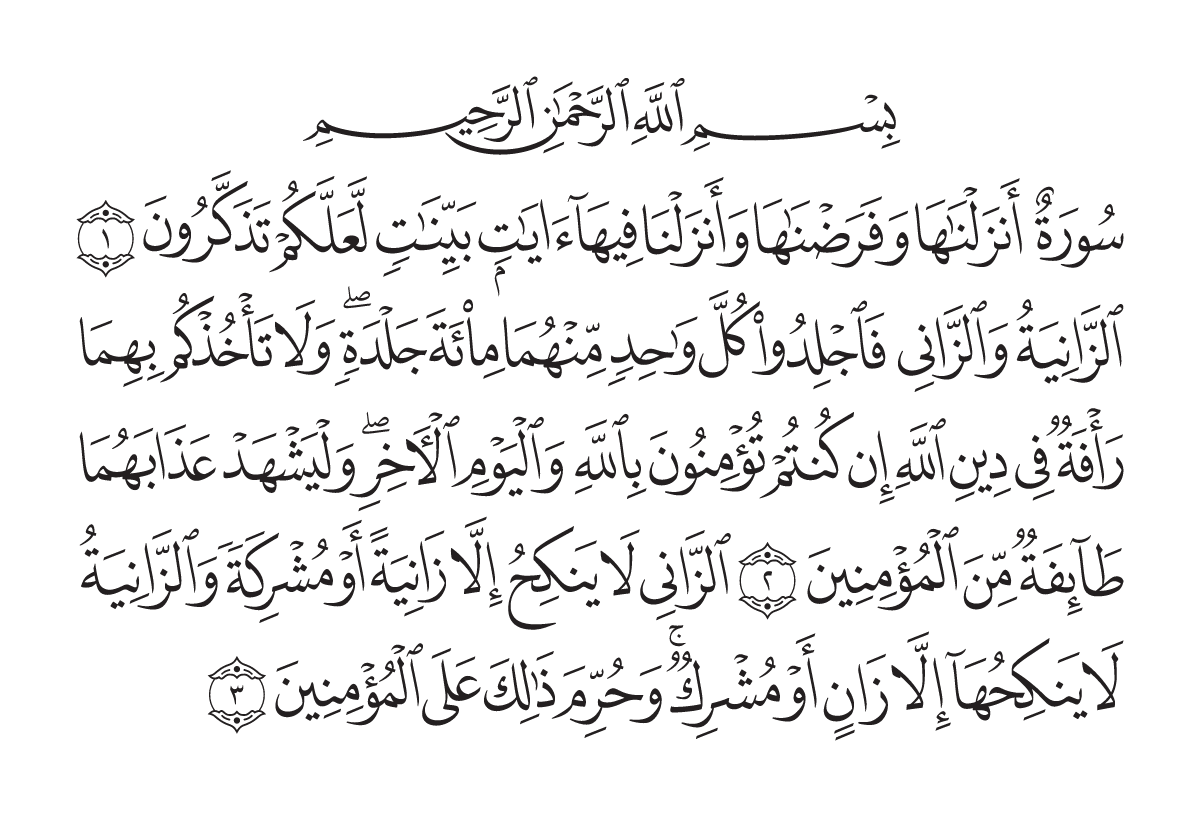 بِسْمِ ٱللَّهِ ٱلرَّحْمَٰنِ ٱلرَّحِيمِ
سُورَةٌ أَنزَلْنَٰهَا وَفَرَضْنَٰهَا وَأَنزَلْنَا فِيهَآ ءَايَٰتٍۭ بَيِّنَٰتٍ لَّعَلَّكُمْ تَذَكَّرُونَ ١
ٱلزَّانِيَةُ وَٱلزَّانِى فَٱجْلِدُوا۟ كُلَّ وَٰحِدٍ مِّنْهُمَا مِا۟ئَةَ جَلْدَةٍ ۖ وَلَا تَأْخُذْكُم بِهِمَا
رَأْفَةٌ فِى دِينِ ٱللَّهِ إِن كُنتُمْ تُؤْمِنُونَ بِٱللَّهِ وَٱلْيَوْمِ ٱلْـَٔاخِرِ ۖ وَلْيَشْهَدْ عَذَابَهُمَا
طَآئِفَةٌ مِّنَ ٱلْمُؤْمِنِينَ ٢ ٱلزَّانِى لَا يَنكِحُ إِلَّا زَانِيَةً أَوْ مُشْرِكَةً وَٱلزَّانِيَةُ
لَا يَنكِحُهَآ إِلَّا زَانٍ أَوْ مُشْرِكٌ ۚ وَحُرِّمَ ذَٰلِكَ عَلَى ٱلْمُؤْمِنِينَ ٣